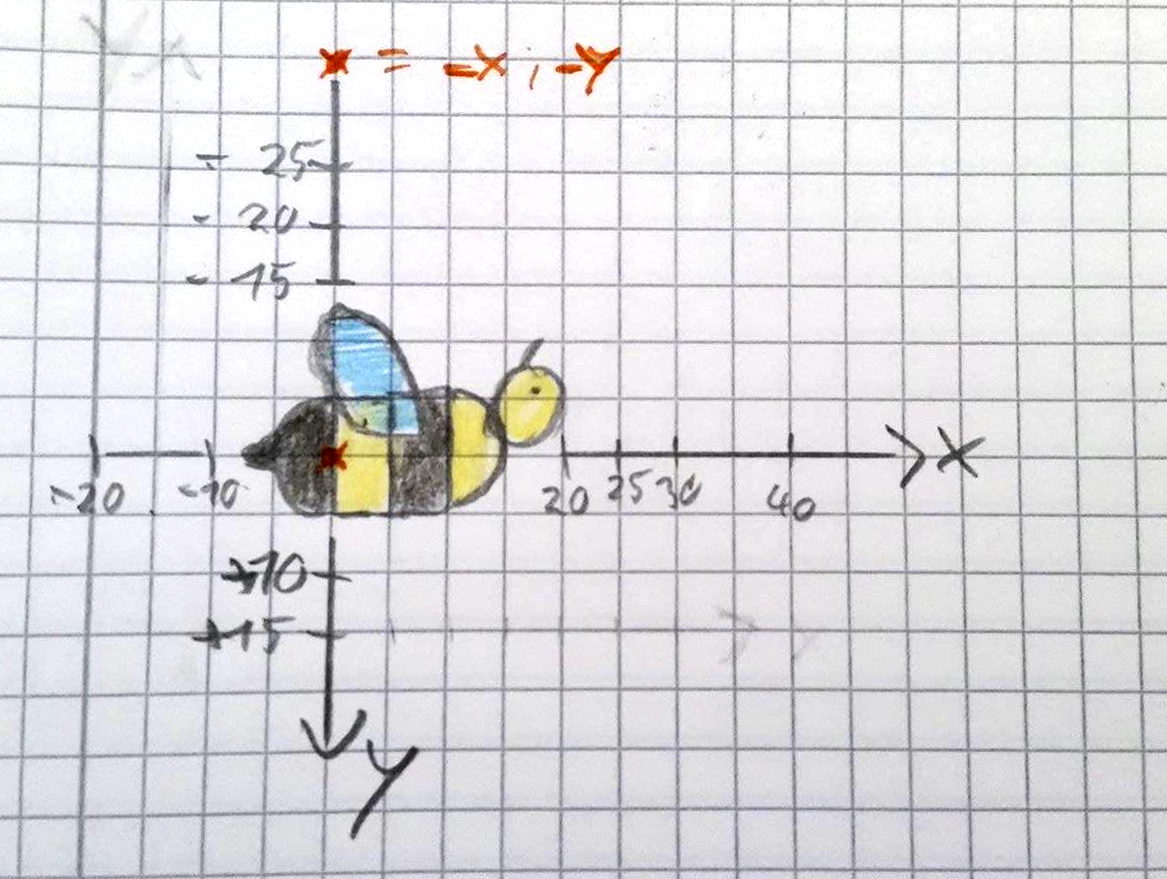 x = -x, -y
- 25
- 20
- 15
-20 -10 20 25 30 40 x
+10
+15
y